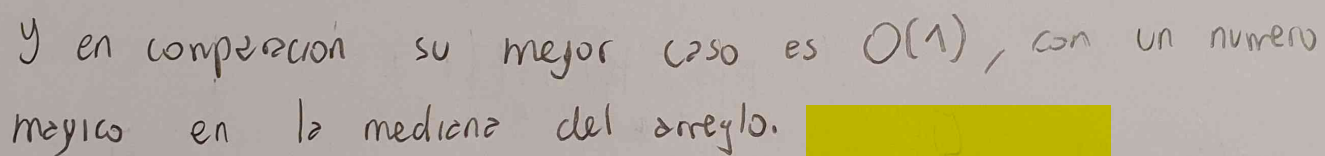 y en comparacion su mejor caso es O(1), con un numero
magico en la mediana del arreglo.